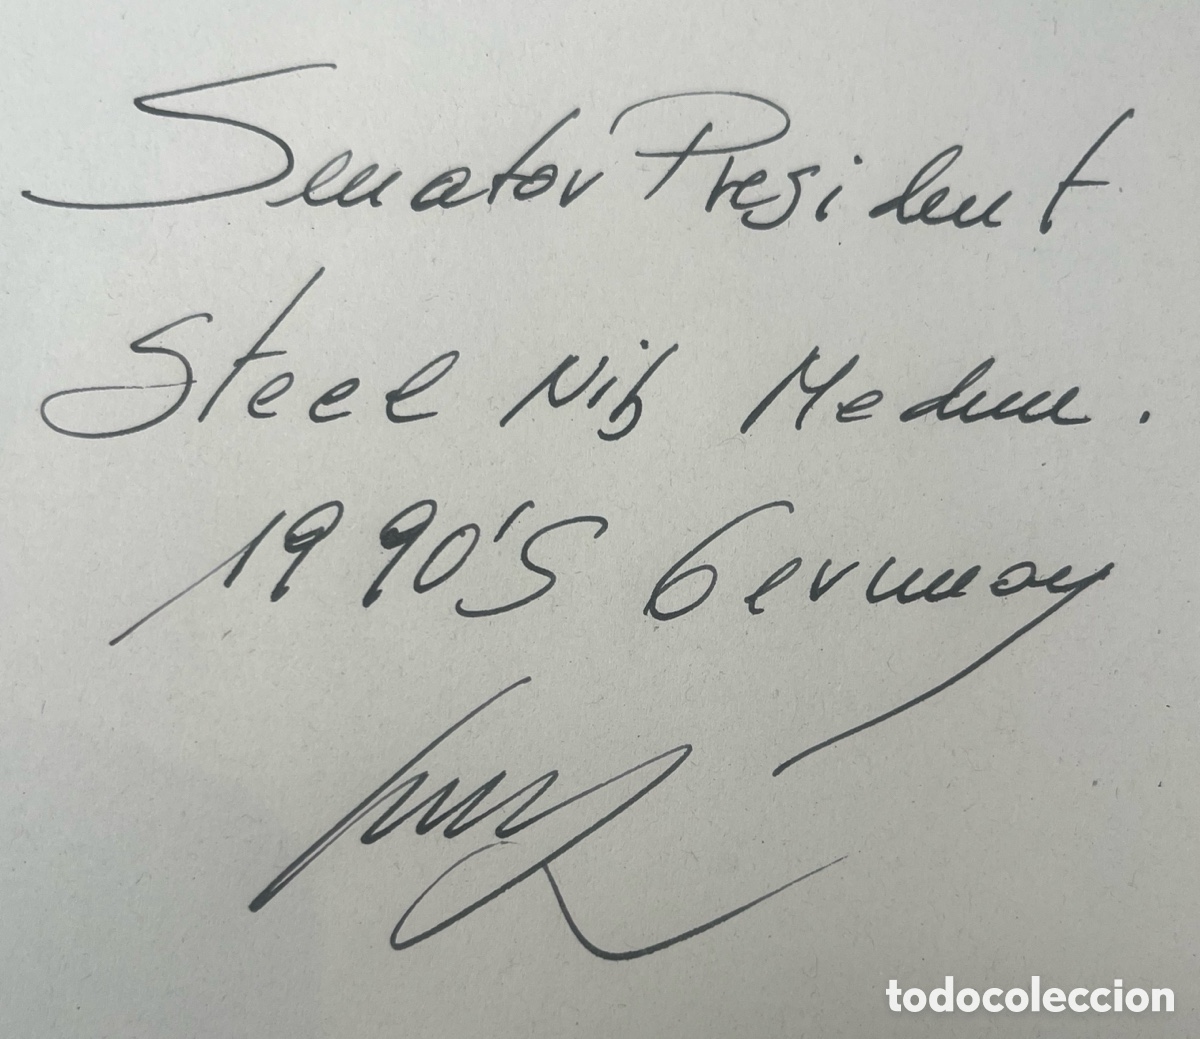 Senator President
Steel Nib Medium.
1990'S Germany
todocoleccion